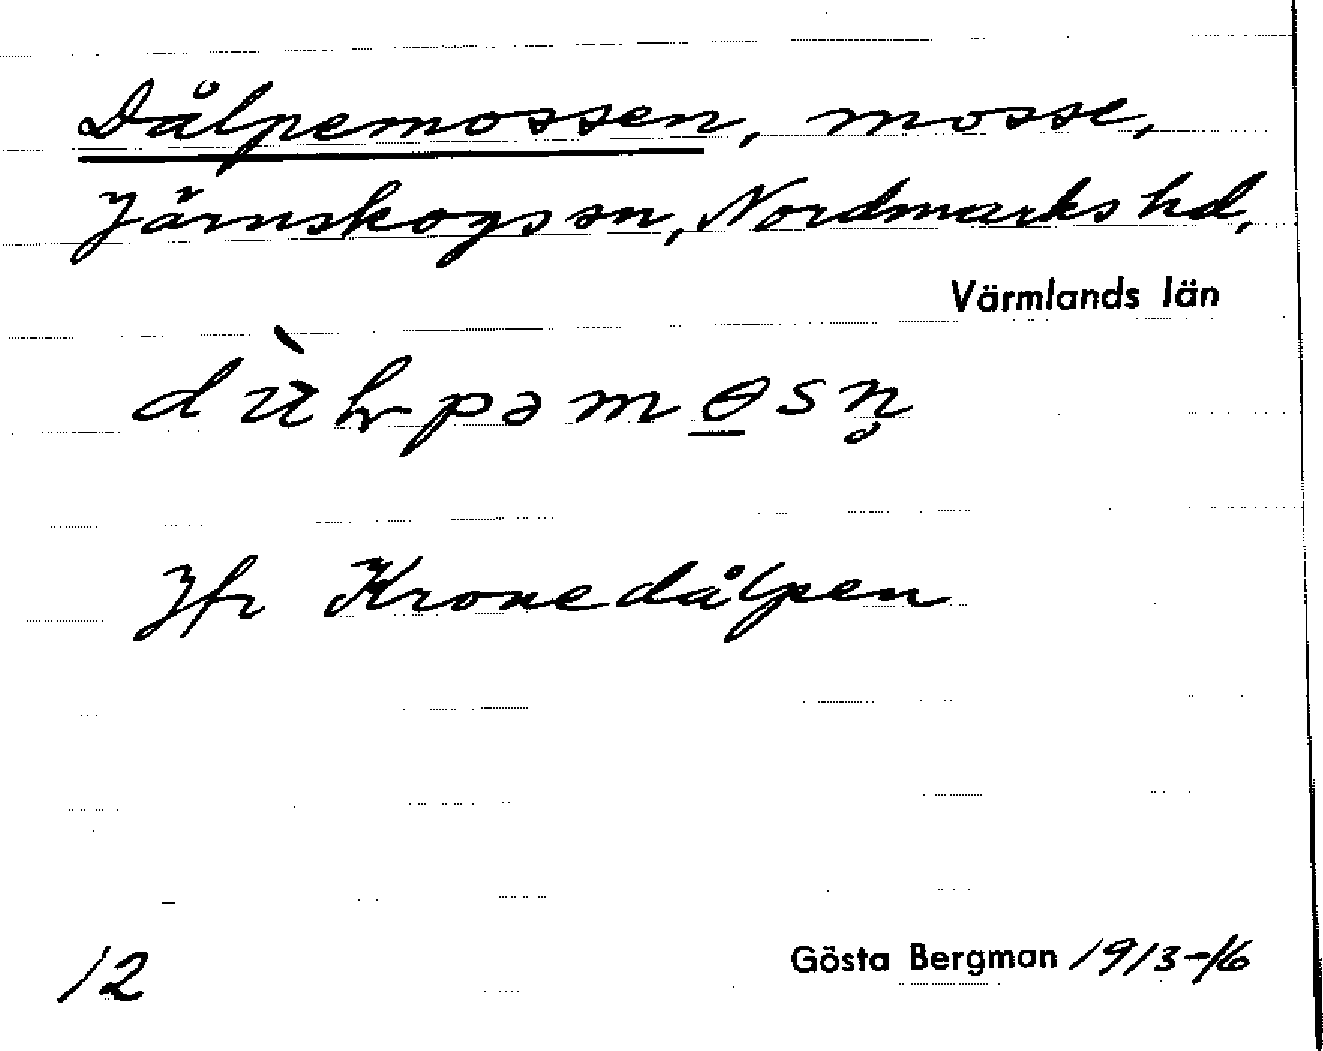 Dålpemossen, mosse,
Järnskogs sn, Nordmarks hd,
Värmlands län
Jfr Kronedålpen
12
Gösta Bergman 1913-16